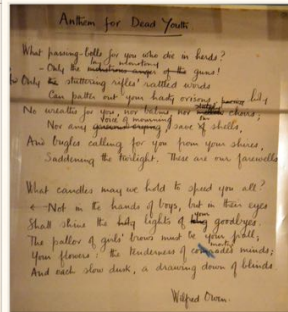 Anthem for Dead Youth
What passing-bells for you who die in herds?
- Only the monstrous anger of the guns!
Only the stuttering rifles' rattled words
Can patter out your hasty orisons
No wreaths for you, nor balms, nor choirs;
Nor any voice of mourning save of shells,
And bugles calling for you from your shires,
Saddening the twilight. These are our farewells
What candles may we hold to speed you all?
Not in the hands of boys, but in their eyes
Shall shine the holy lights of your goodbyes.
The pallor of girls' brows must be your pall;
Your flowers: the tenderness of comrades minds;
And each slow dusk, a drawing down of blinds
Wilfred Owen.